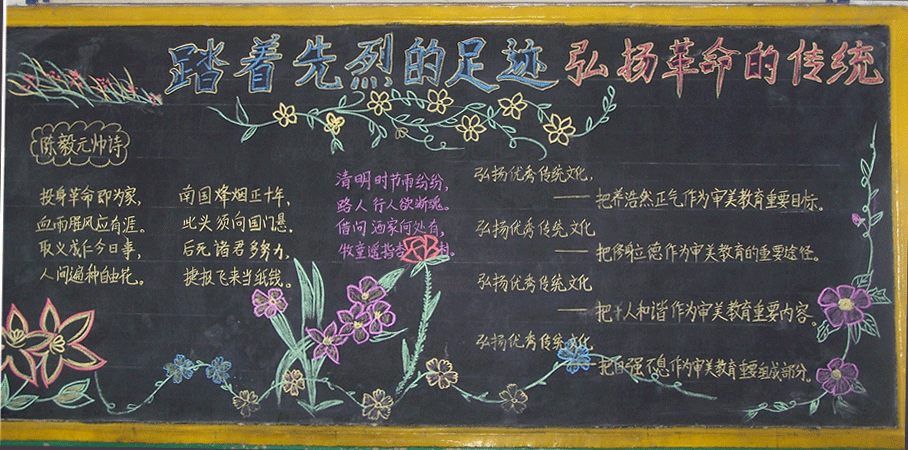 踏着先烈的足迹 弘扬革命的传统
陈毅元帅诗
投身革命即为家,
血雨腥风应有涯。
取义成仁今日事,
人间遍种自由花。
南国烽烟正十年,
此头须向国门悬。
后死诸君多努力,
捷报飞来当纸钱。
清明时节雨纷纷,
路人行人欲断魂。
借问酒家何处有,
牧童遥指杏 村。
弘扬优秀传统文化,
——把养浩然正气作为审美教育重要目标。
弘扬优秀传统文化
——把修身立德作为审美教育的重要途径。
弘扬优秀传统文化
——把 人和谐作为审美教育重要内容
弘扬优秀传统文化
——把自强不息作为审美教育重要组成部分。